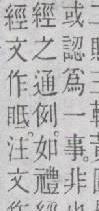 或認為一事。非也
經之通例。如禮
經文作眡。注文作